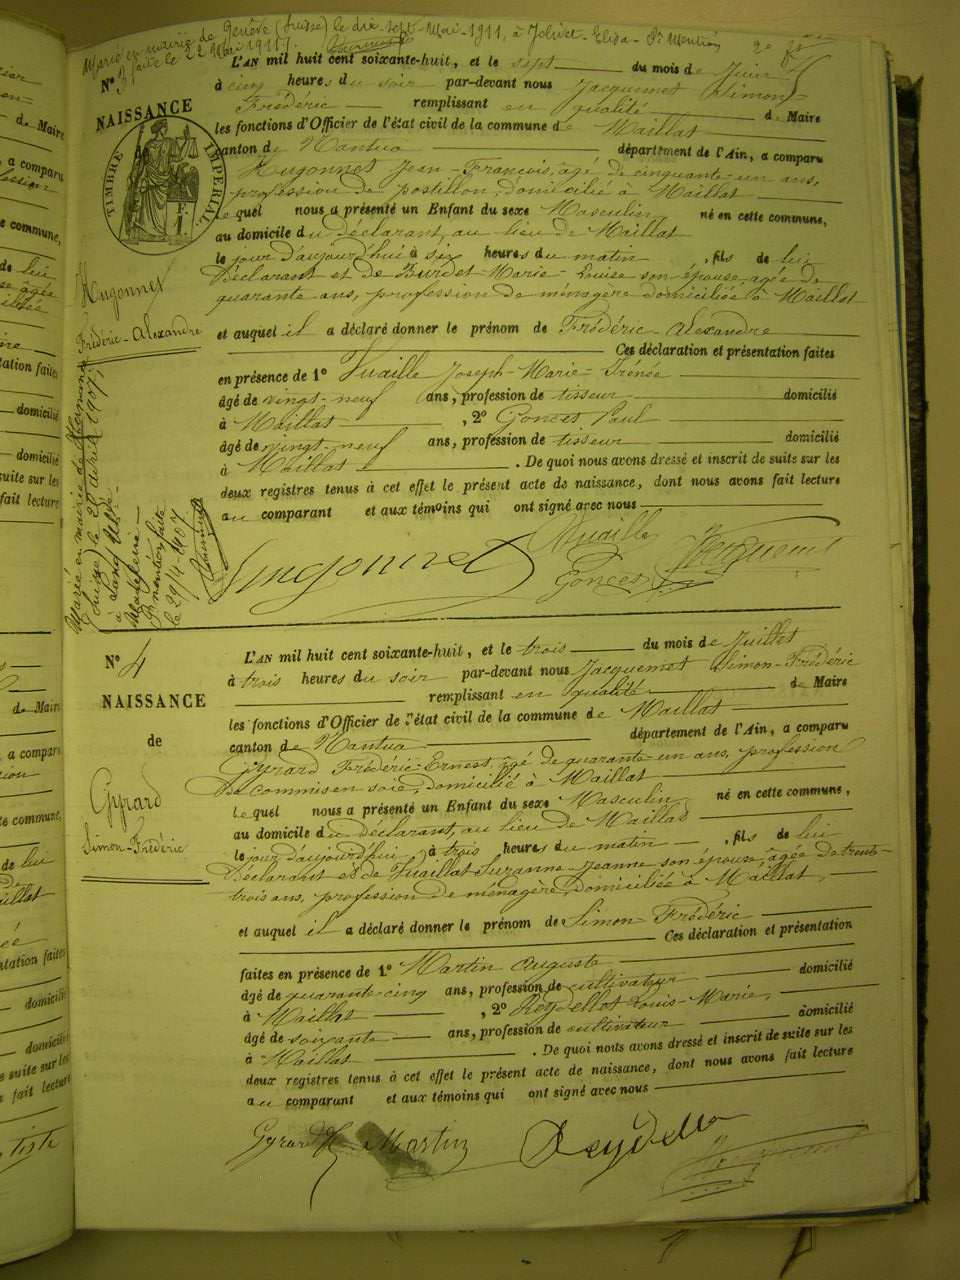 Marié en mairie de Genève (Suisse) le dix-sept Mai 1911, à Jolivet Elisa - Pr Mention
faite le 22 Mai 1911.
2e
N° 3
NAISSANCE
TIMBRE IMPÉRIAL
1 F.
Hugonnet
Frédéric-Alexandre
L'AN mil huit cent soixante-huit, et le sept du mois de Juin
à cinq heures du soir par-devant nous Jacquemet Simon-
Frédéric remplissant en qualité de Maire
les fonctions d'Officier de l'état civil de la commune de Maillat
canton de Nantua département de l'Ain, a comparu
Hugonnet Jean-François, âgé de cinquante-un ans,
profession de postillon, domicilié à Maillat
lequel nous a présenté un Enfant du sexe Masculin, né en cette commune,
au domicile du déclarant, au lieu de Maillat
le jour d'aujourd'hui à six heures du matin, fils de lui
déclarant et de Burdet Marie-Louise son épouse, âgée de
quarante ans, profession de ménagère domiciliée à Maillat
et auquel il a déclaré donner le prénom de Frédéric-Alexandre
Ces déclaration et présentation faites
en présence de 1° Vuaille Joseph-Marie-Irénée
âgé de vingt-neuf ans, profession de tisseur domicilié
à Maillat, 2° Gonces Paul
âgé de vingt-neuf ans, profession de tisseur domicilié
à Maillat. De quoi nous avons dressé et inscrit de suite sur les
deux registres tenus à cet effet le présent acte de naissance, dont nous avons fait lecture
au comparant et aux témoins qui ont signé avec nous
Hugonnet Vuaille Jacquemet
Gonces
Marié en mairie de
(Suisse) le 1907,
à
Pr mention faite
le 29/4-1907
N° 4
NAISSANCE
de
Gyrard
Simon-Frédéric
L'AN mil huit cent soixante-huit, et le trois du mois de Juillet
à trois heures du soir par-devant nous Jacquemet Simon-Frédéric
remplissant en qualité de Maire
les fonctions d'Officier de l'état civil de la commune de Maillat
canton de Nantua département de l'Ain, a comparu
Gyrard Frédéric-Ernest, âgé de quarante-un ans, profession
de commis en soie, domicilié à Maillat
lequel nous a présenté un Enfant du sexe Masculin, né en cette commune,
au domicile du déclarant, au lieu de Maillat
le jour d'aujourd'hui à trois heures du matin, fils de lui
déclarant et de Vuaillat Suzanne-Jeanne son épouse, âgée de trente-
trois ans, profession de ménagère, domiciliée à Maillat,
et auquel il a déclaré donner le prénom de Simon-Frédéric
Ces déclaration et présentation
faites en présence de 1° Martin Auguste
âgé de quarante-cinq ans, profession de cultivateur domicilié
à Maillat, 2° Reydellet Louis-Marie,
âgé de soixante ans, profession de cultivateur domicilié
à Maillat. De quoi nous avons dressé et inscrit de suite sur les
deux registres tenus à cet effet le présent acte de naissance, dont nous avons fait lecture
au comparant et aux témoins qui ont signé avec nous
Gyrard Martin Reydellet